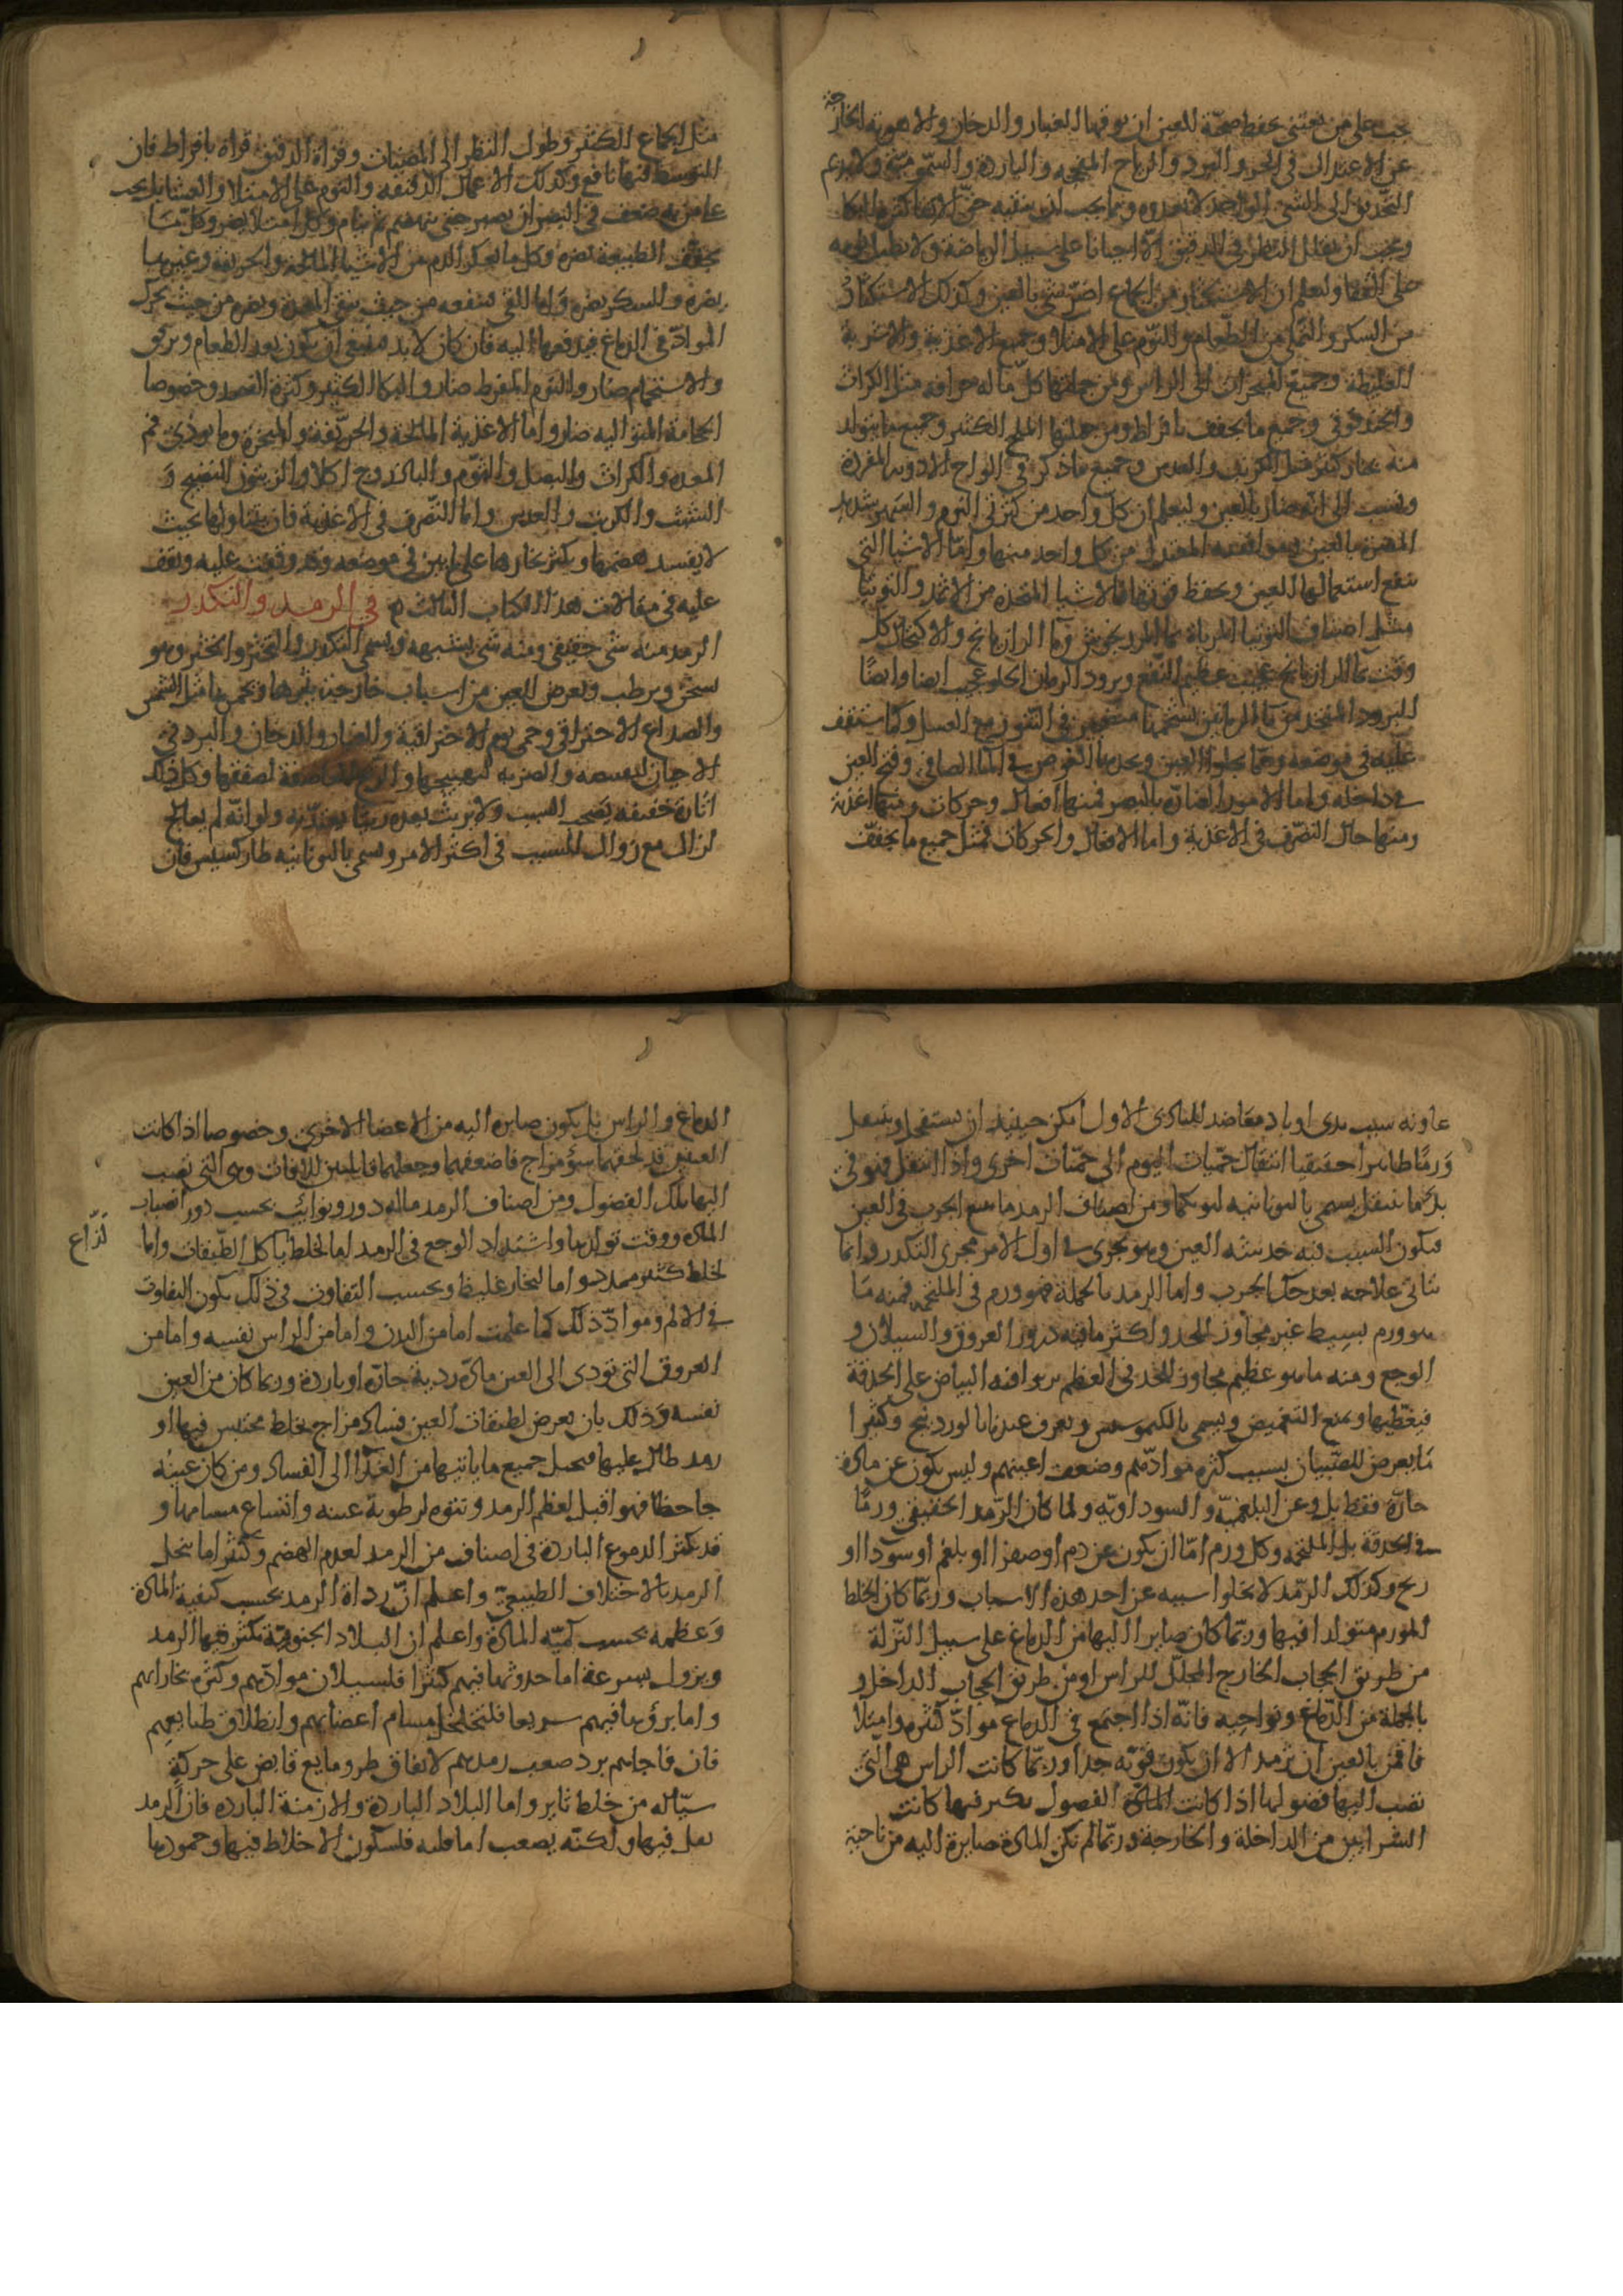 يجب على من يعتنى بحفظ صحة العين ان يوقيها الغبار والدخان والاهوية الخارجة
عن الاعتدال فى الحر والبرد والرياح المفججة والباردة والسمومية ولا يديم
التحديق الى الشى الواحد لا يعدوه ومما يجب ان يتقيه حق الاتقا كثرة البكا
ويجب ان يقلل النظر فى الدقيق الا احيانا على سبيل الرياضة ولا يطيل نومه
على القفا وليعلم ان الاستكثار من الجماع اضر شى بالعين وكذلك الاستكثار
من السكر والتملى من الطعام والنوم على الامتلا وجميع الاغذية والاشربة
الغليظة وجميع المبخرات الى الراس ومن جملتها كل ما له حرافة مثل الكراث
والحندقوقى وجميع ما يجفف بافراط ومن جملتها الملح الكثير وجميع ما يتولد
منه بخار كثير مثل الكرنب والعدس وجميع ما ذكر فى الواح الادوية المفردة
ونسب الى انه ضار بالعين وليعلم ان كل واحد من كثرتى النوم والسهر شديد
المضرة بالعين وموافقة المعتدل من كل واحد منهما واما الاشيا التى
ينفع استعمالها العين ويحفظ قوتها فالاشيا المتخذة من الاثمد والتوتيا
مثل اصناف التوتيا المرباة بما المرزنجوش وما الرازيانج والاكتحال كل
وقت بما الرازيانج عجيب عظيم النفع وبرود الرمان الحلو عجيب ايضا وايضا
البرود المتخذ من ما الرمانين بشحمهما منضجين فى التنور مع العسل وكما ستقف
عليه فى موضعه ومما يجلوا العين ويحدها الغوص فى الما الصافى وفتح العين
فى داخله واما الامور الضارة بالبصر فمنها افعال وحركات ومنها اغذية
ومنها حال التصرف فى الاغذية واما الافعال والحركات فمثل جميع ما يجفف
مثل الجماع الكثير وطول النظر الى المضيئات وقراة الدقيق قراة بافراط فان
المتوسط فيها نافع وكذلك الاعمال الدقيقة والنوم على الامتلا والعشا بل يجب
على من به ضعف فى البصر ان يصبر حتى ينهضم ثم ينام وكل امتلا يضر وكل ما
يجفف الطبيعة يضره وكل ما يعكر الدم من الاشيا المالحة والحريفة وغيرها
يضره والسكر يضره واما القى فينفعه من حيث ينقى المعدة ويضره من حيث يحرك
المواد فى الدماغ فيدفعها اليه فان كان لا بد فينبغى ان يكون بعد الطعام وبرفق
والاستحمام ضار والنوم المفرط ضار والبكا الكثير وكثرة الفصد وخصوصا
الحجامة المتوالية ضار واما الاغذية المالحة والحريفة والمبخرة وما يوذى فم
المعدة والكراث والبصل والثوم والباذروج اكلا والزيتون النضيج و
الشبث والكرنب والعدس واما التصرف فى الاغذية فان يتناولها بحيث
لا يفسد هضمها ويكثر بخارها على ما بين فى موضعه وقد وقفت عليه وتقف
عليه فى مقالات هذا الكتاب الثالث فى الرمد والتكدر
الرمد منه شى حقيقى ومنه شى يشبهه ويسمى التكدر والتخثر والخثر وهو
سخن ويرطب ويعرض للعين من اسباب خارجة يثيرها ويحميها مثل الشمس
والصداع الاحتراقى وحمى يوم الاحتراقية والغبار والدخان والبرد فى
الاحيان لتقبيضه والضربة لتهييجها والريح العاصفة لصفقها وكل ذلك
اثارة خفيفة تصحب السبب ولا يريث بعده ريثا يعتد به ولو انه لم يعالج
لزال مع زوال السبب فى اكثر الامر ويسمى باليونانية طاركسيس فان
عاونه سبب بدى او بادى معاضد للبادى الاول امكن حينئذ ان يستفحل وينتقل
ورما ظاهرا حقيقيا انتقال حميات اليوم الى حميات اخرى واذا انتقل فهو فى
بدو ما ينتقل يسمى باليونانية لبوبكما ومن اصناف الرمد ما يتبع الجرب فى العين
فيكون السبب فيه خدشه العين وهو يجرى فى اول الامر مجرى التكدر وانما
يتاتى علاجه بعد حك الجرب واما الرمد بالجملة فهو ورم فى الملتحمة فمنه ما
هو ورم بسيط غير مجاوز للحد واكثر ما فيه درور العروق والسيلان و
الوجع ومنه ما هو عظيم مجاوز للحد فى العظم يربوا فيه البياض على الحدقة
فيغطيها ويمنع التغميض ويسمى بالكيموسس ويعرف عندنا بالوردينج وكثيرا
ما يعرض للصبيان بسبب كثرة موادهم وضعف اعينهم وليس يكون عن مادة
حارة فقط بل وعن البلغمية والسوداوية ولما كان الرمد الحقيقى ورما
فى الحدقة بل الملتحمة وكل ورم اما ان يكون عن دم او صفرا او بلغم او سودا او
ريح وكذلك الرمد لا يخلوا سببه عن احد هذه الاسباب وربما كان الخلط
المورم متولدا فيها وربما كان صايرا اليها من الدماغ على سبيل النزلة
من طريق الحجاب الخارج المجلل للراس او من طريق الحجاب الداخل و
بالجملة من الدماغ ونواحيه فانه اذا اجتمع فى الدماغ مواد كثيرة وامتلا
فاقمن بالعين ان ترمد الا ان يكون قوية جدا وربما كانت الراس هى التى
تصب اليها فضولها اذا كانت المادة الفضول تكثر فيها كانت
الشرايين من الداخلة والخارجة وربما لم تكن المادة صايرة اليه من ناحية
الدماغ والراس بل يكون صايره اليه من الاعضا الاخرى وخصوصا اذا كانت
العين قد لحقها سؤ مزاج فاضعفها وجعلها قابلة للافات وهى التى تصب
اليها تلك الفضول ومن اصناف الرمد ما له دور ونوائب بحسب دور انصباب
المادة ووقت تولدها واشتداد الوجع فى الرمد اما لخلط يأكل الطبقات واما
لذاع
لخلط كثير ممدد واما لبخار غليظ وبحسب التفاوت فى ذلك يكون التفاوت
فى الالم ومواد ذلك كما علمت اما من البدن واما من الراس نفسه واما من
العروق التى تودى الى العين مادة ردية حارة او باردة وربما كان من العين
نفسه وذلك بان يعرض لطبقات العين فساد مزاج بخلط محتبس فيها او
رمد طال عليها فيحيل جميع ما ياتيها من الغذا الى الفساد ومن كان عينه
جاحظا فهو اقبل لعظم الرمد ونتوه لرطوبة عينه واتساع مسامها و
قد يكثر الدموع الباردة فى اصناف من الرمد لعدم الهضم وكثيرا ما ينحل
الرمد بالاختلاف الطبيعى واعلم ان رداة الرمد بحسب كيفية المادة
وعظمه بحسب كمية المادة واعلم ان البلاد الجنوبية تكثر فيها الرمد
ويزول بسرعة اما حدوثها فيهم كثيرا فلسيلان موادهم وكثرة بخاراتهم
واما برؤها فيهم سريعا فلتخلخل مسام اعضايهم وانطلاق طبايعهم
فان فاجاهم برد صعب رمدهم لاتفاق طرو مانع قابض على حركة
سيالة من خلط ثاير واما البلاد الباردة والازمنة الباردة فان الرمد
يقل فيها ولكنه يصعب اما قلته فلسكون الاخلاط فيها وجمودها